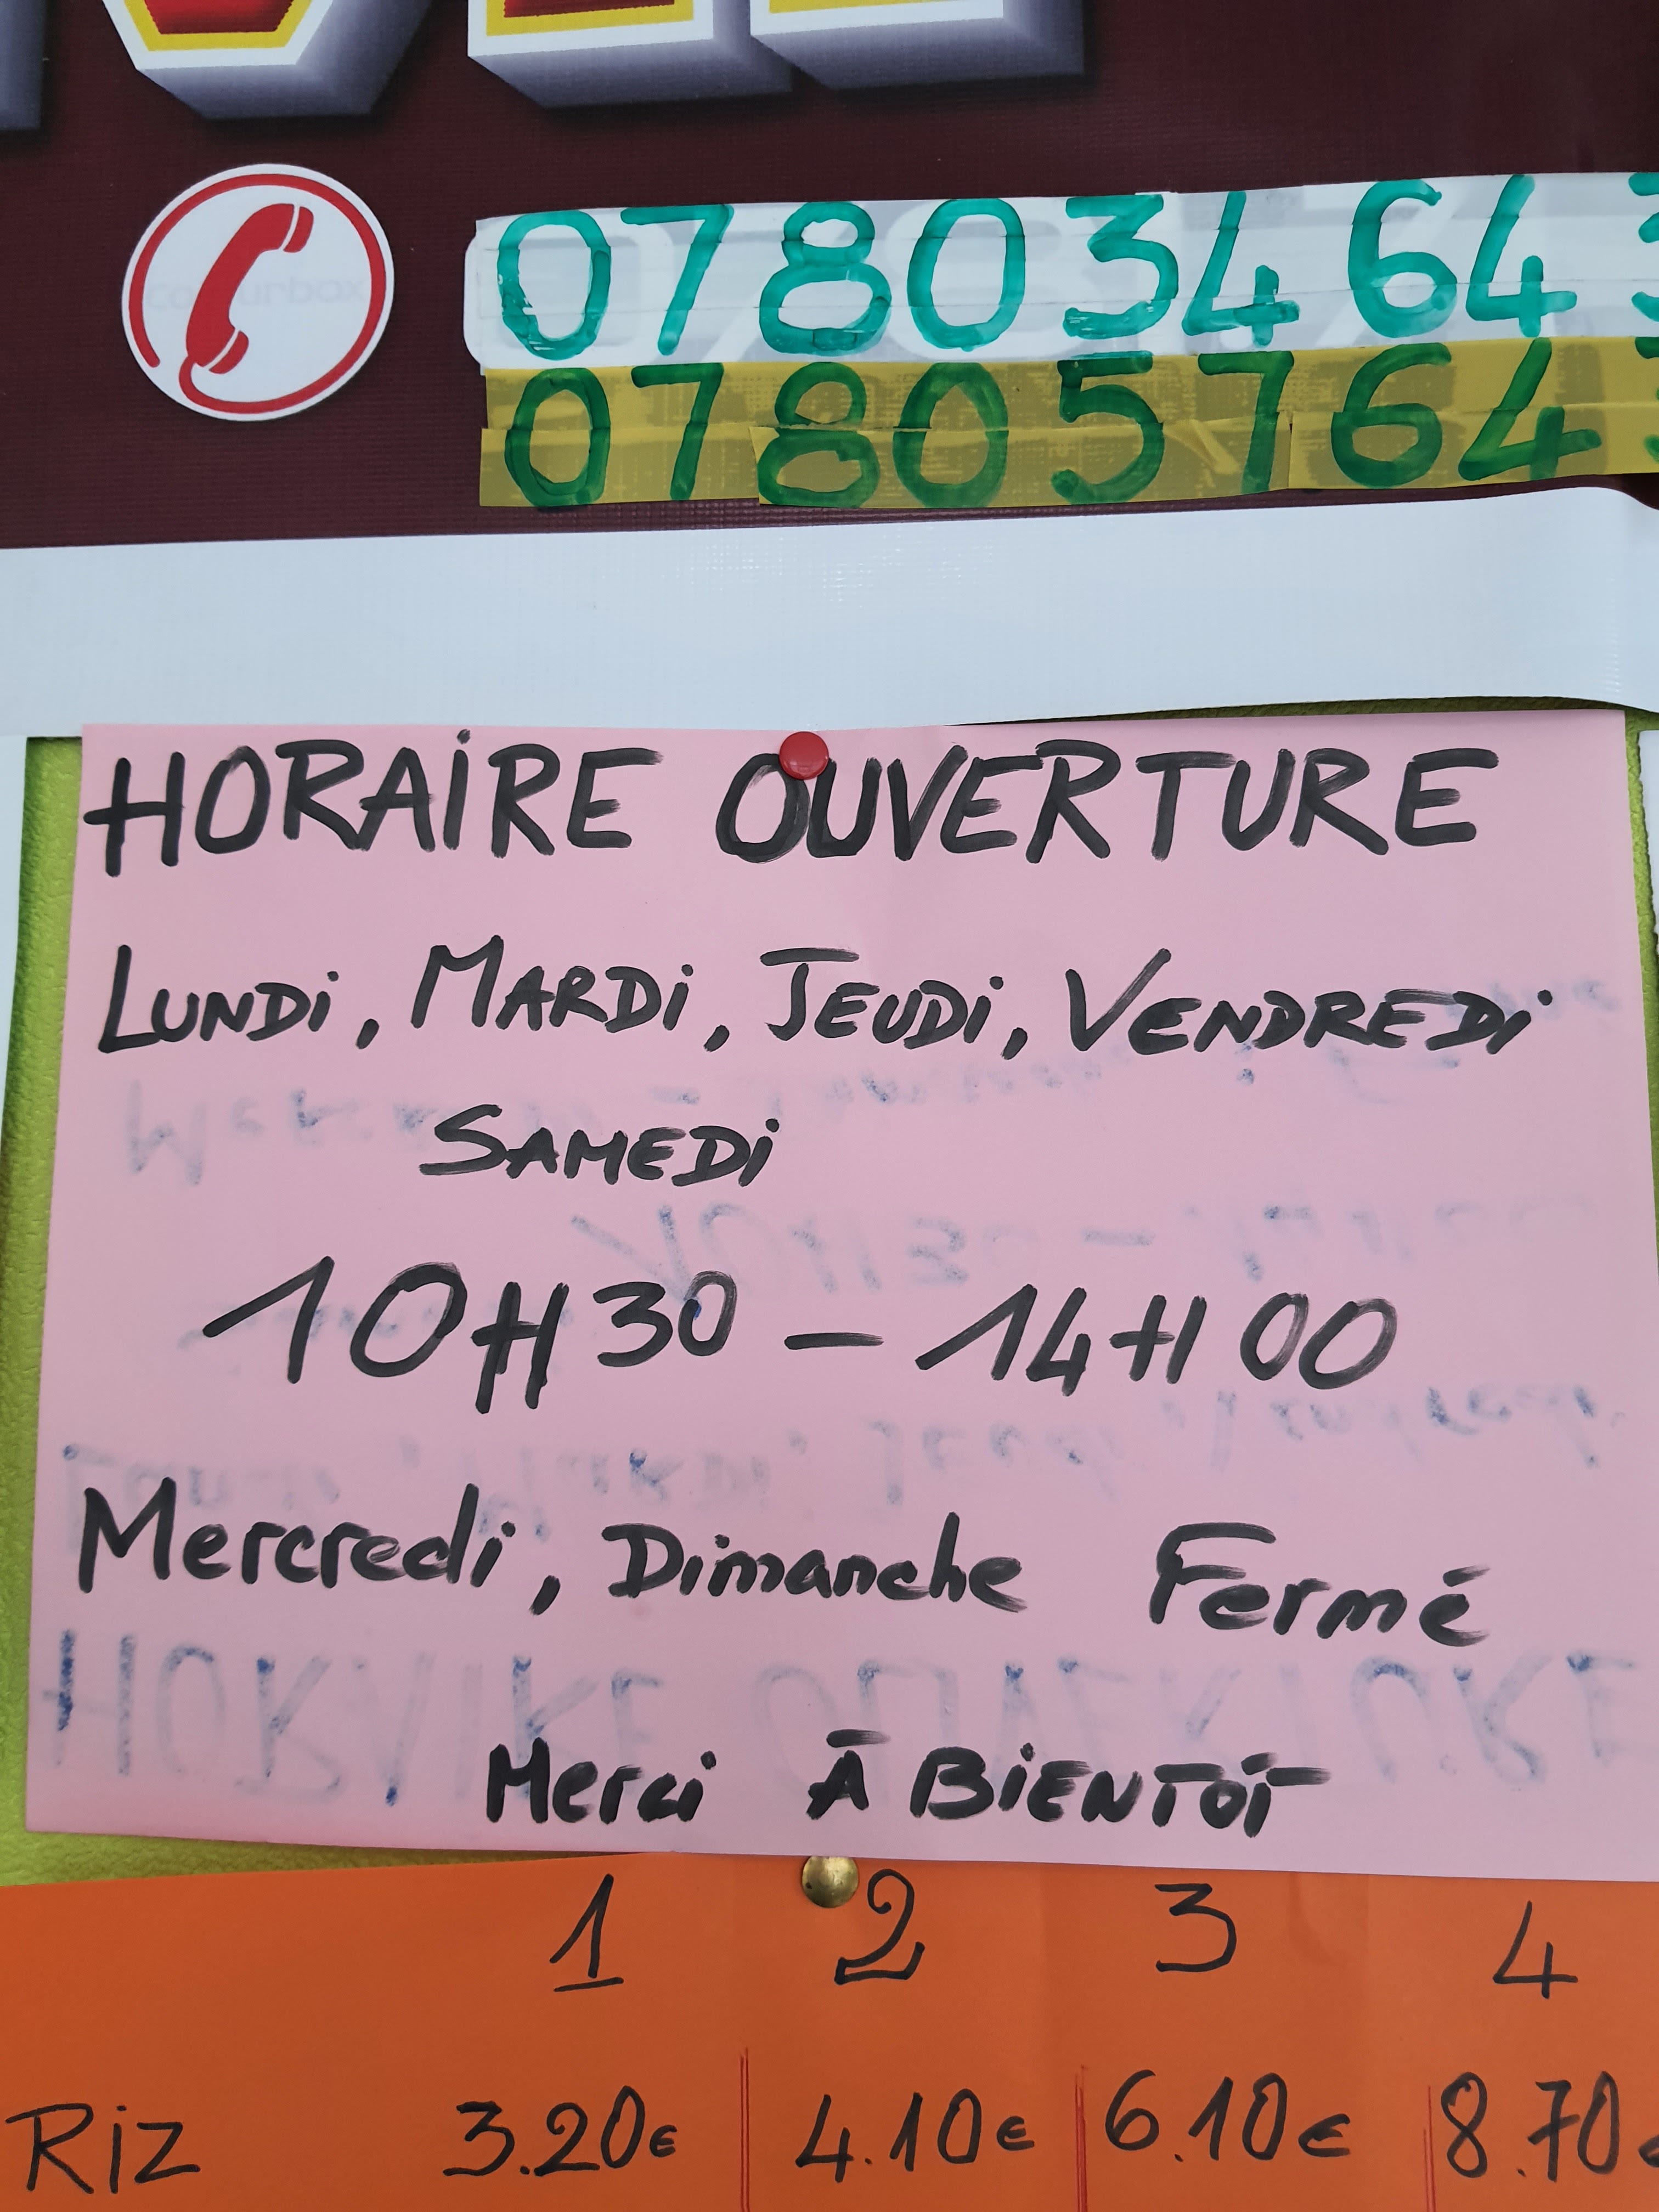 07 80 34 64
07 80 57 64
HORAIRE OUVERTURE
LUNDI, MARDI, JEUDI, VENDREDI
SAMEDI
10H30 - 14H00
Mercredi, Dimanche Fermé
Merci À BIENTÔT
1 2 3 4
Riz 3.20€ 4.10€ 6.10€ 8.70€